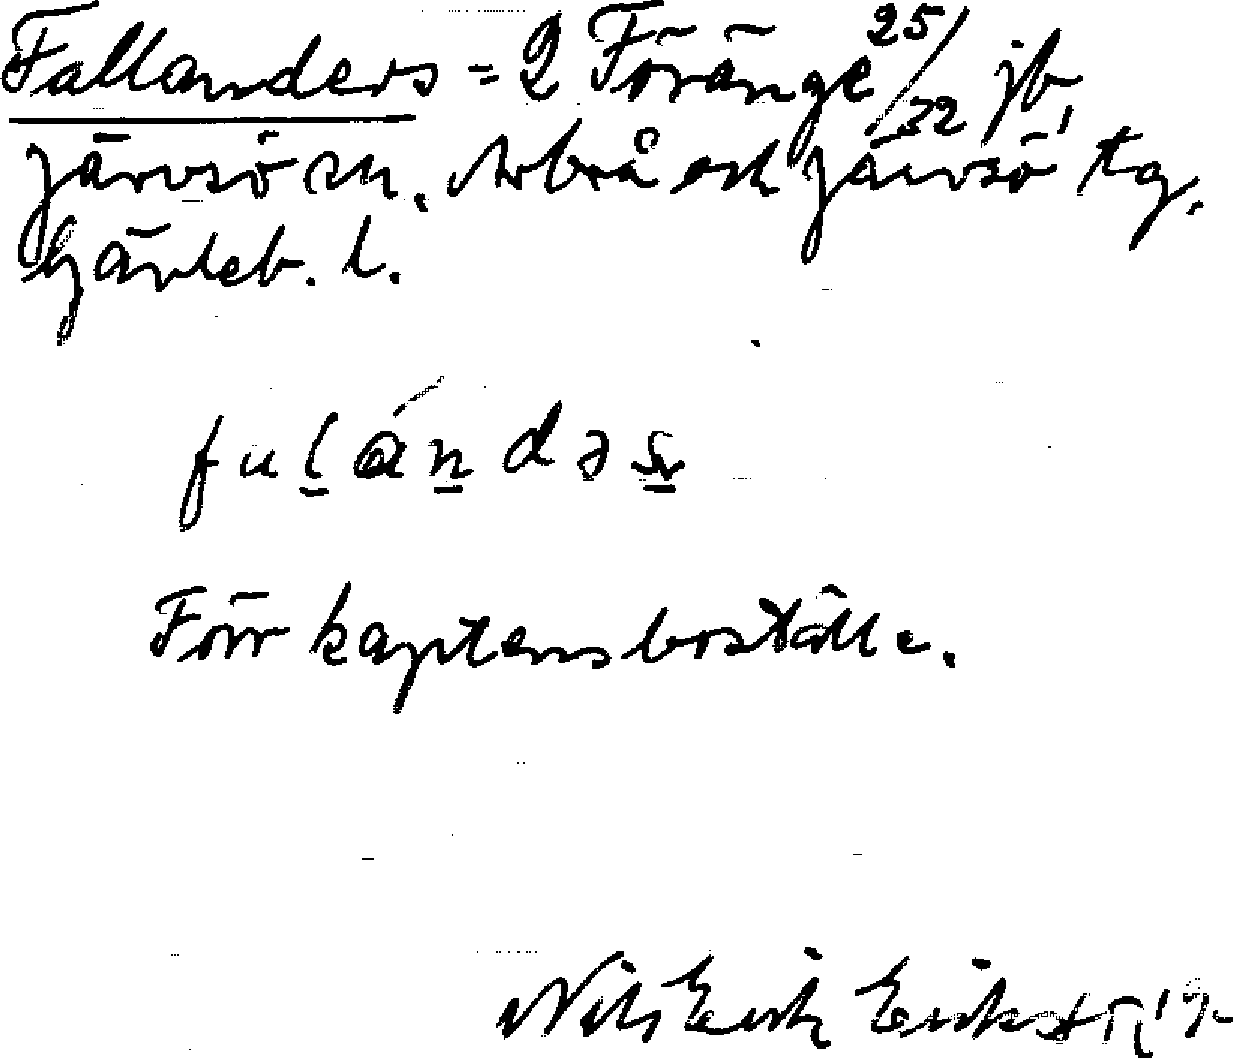 Fallanders = 2 Föränge 25/32 jb,
Järvsö sn. Arbrå och Järvsö tg.
Gävleb. l.
fulándəs
Förr kaptensboställe.
Nils Erik Eriksson